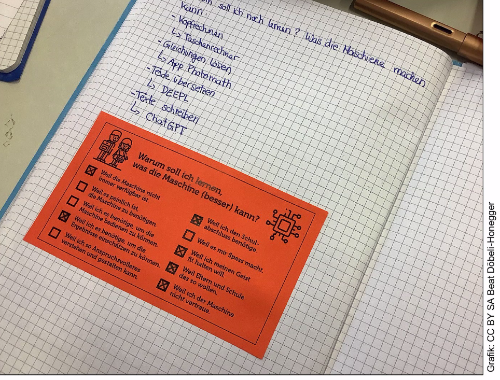 soll ich noch lernen? Was die Maschine machen
kann.
- Kopfrechnen
↳ Taschenrechner
- Gleichungen lösen
↳ App Photomath
- Texte übersetzen
↳ DEEPL
- Texte schreiben
↳ ChatGPT
Warum soll ich lernen,
was die Maschine (besser) kann?
Weil die Maschine nicht
immer verfügbar ist.
Weil es peinlich ist,
die Maschine zu benötigen.
Weil ich es benötige, um die
Maschine bedienen zu können.
Weil ich es benötige, um die
Ergebnisse einschätzen zu können.
Weil ich so Anspruchsvolleres
verstehen und gestalten kann.
Weil ich den Schul-
abschluss benötige.
Weil es mir Spass macht.
Weil ich meinen Geist
fit halten will.
Weil Eltern und Schule
das so wollen.
Weil ich der Maschine
nicht vertraue.
Grafik: CC BY SA Beat Döbeli-Honegger